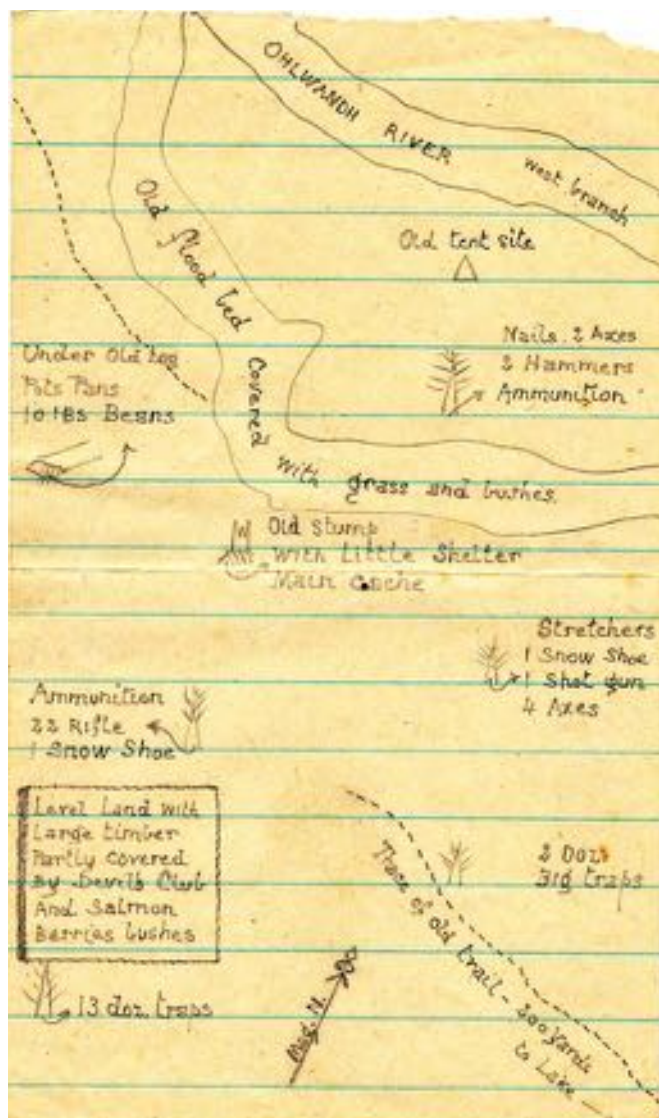 OHLWANDH RIVER west branch
Old flood bed covered with grass and bushes.
Old tent site
Nails, 2 Axes
2 Hammers
Ammunition
Under Old Log
Pots Pans
10 lbs Beans
Old stump
With Little Shelter
Main cache
Stretchers
1 Snow Shoe
1 Shot gun
4 Axes
Ammunition
22 Rifle
1 Snow Shoe
Level Land with
Large timber
Partly Covered
By Devils Club
And Salmon
Berries bushes
2 Doz.
Big traps
Trace of old trail - 200 yards
to Lake
13 doz. traps
Mag. N.